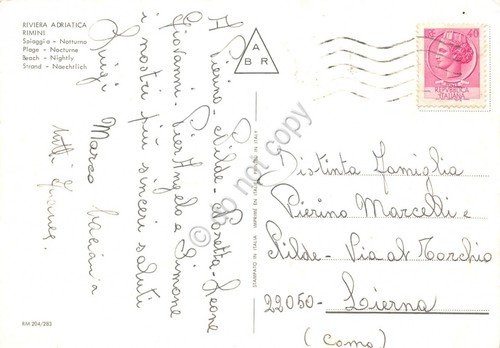 RIVIERA ADRIATICA
RIMINI
Spiaggia - Notturno
Plage - Nocturne
Beach - Nightly
Strand - Naechtlich
A Pierino - Nilde - Loretta - Leone
Giovanni - Pier Angelo a Simone
i nostri più sinceri saluti
Luigi Marco Luciana
tutti
A
B R
40
REPVBBLICA
ITALIANA
STAMPATO IN ITALIA IMPRIMÉ EN ITALIE PRINTED IN ITALY
Distinta famiglia
Pierino Marcelli e
Nilde - Via al Torchio
22050 - Lierna
(Como)
RM 204/283
do not copy